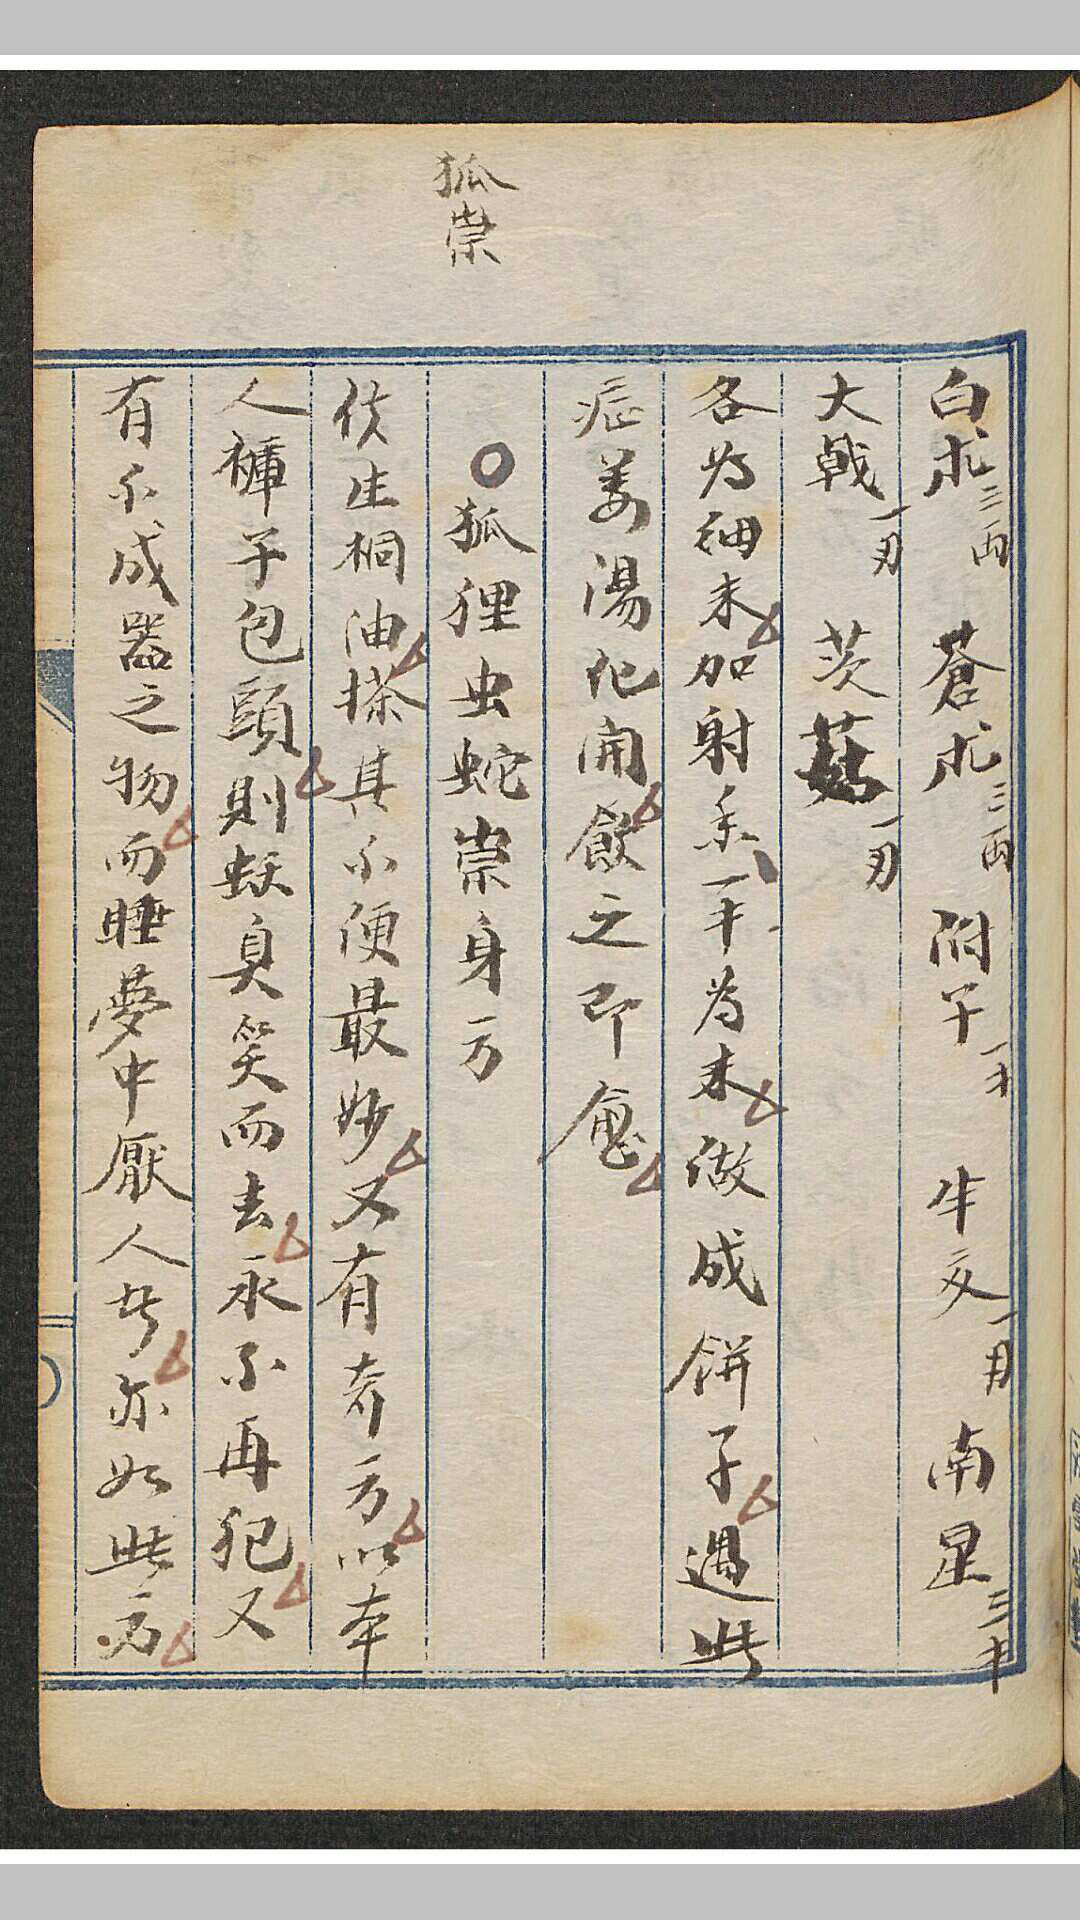 狐祟
白朮三両 蒼朮三両 附子一才 牛文一用 南星三才
大戟一刃 茨菇一刃
各為細末加射香一才為末做成餅子遇此
症姜湯化開飲之即
狐狸虫蛇祟身方
依生桐油搽其不便最妙又有奇方以本
人褲子包頭則妖臭笑而去永不再犯又
有不成器之物而睡夢中厭人者亦如此方